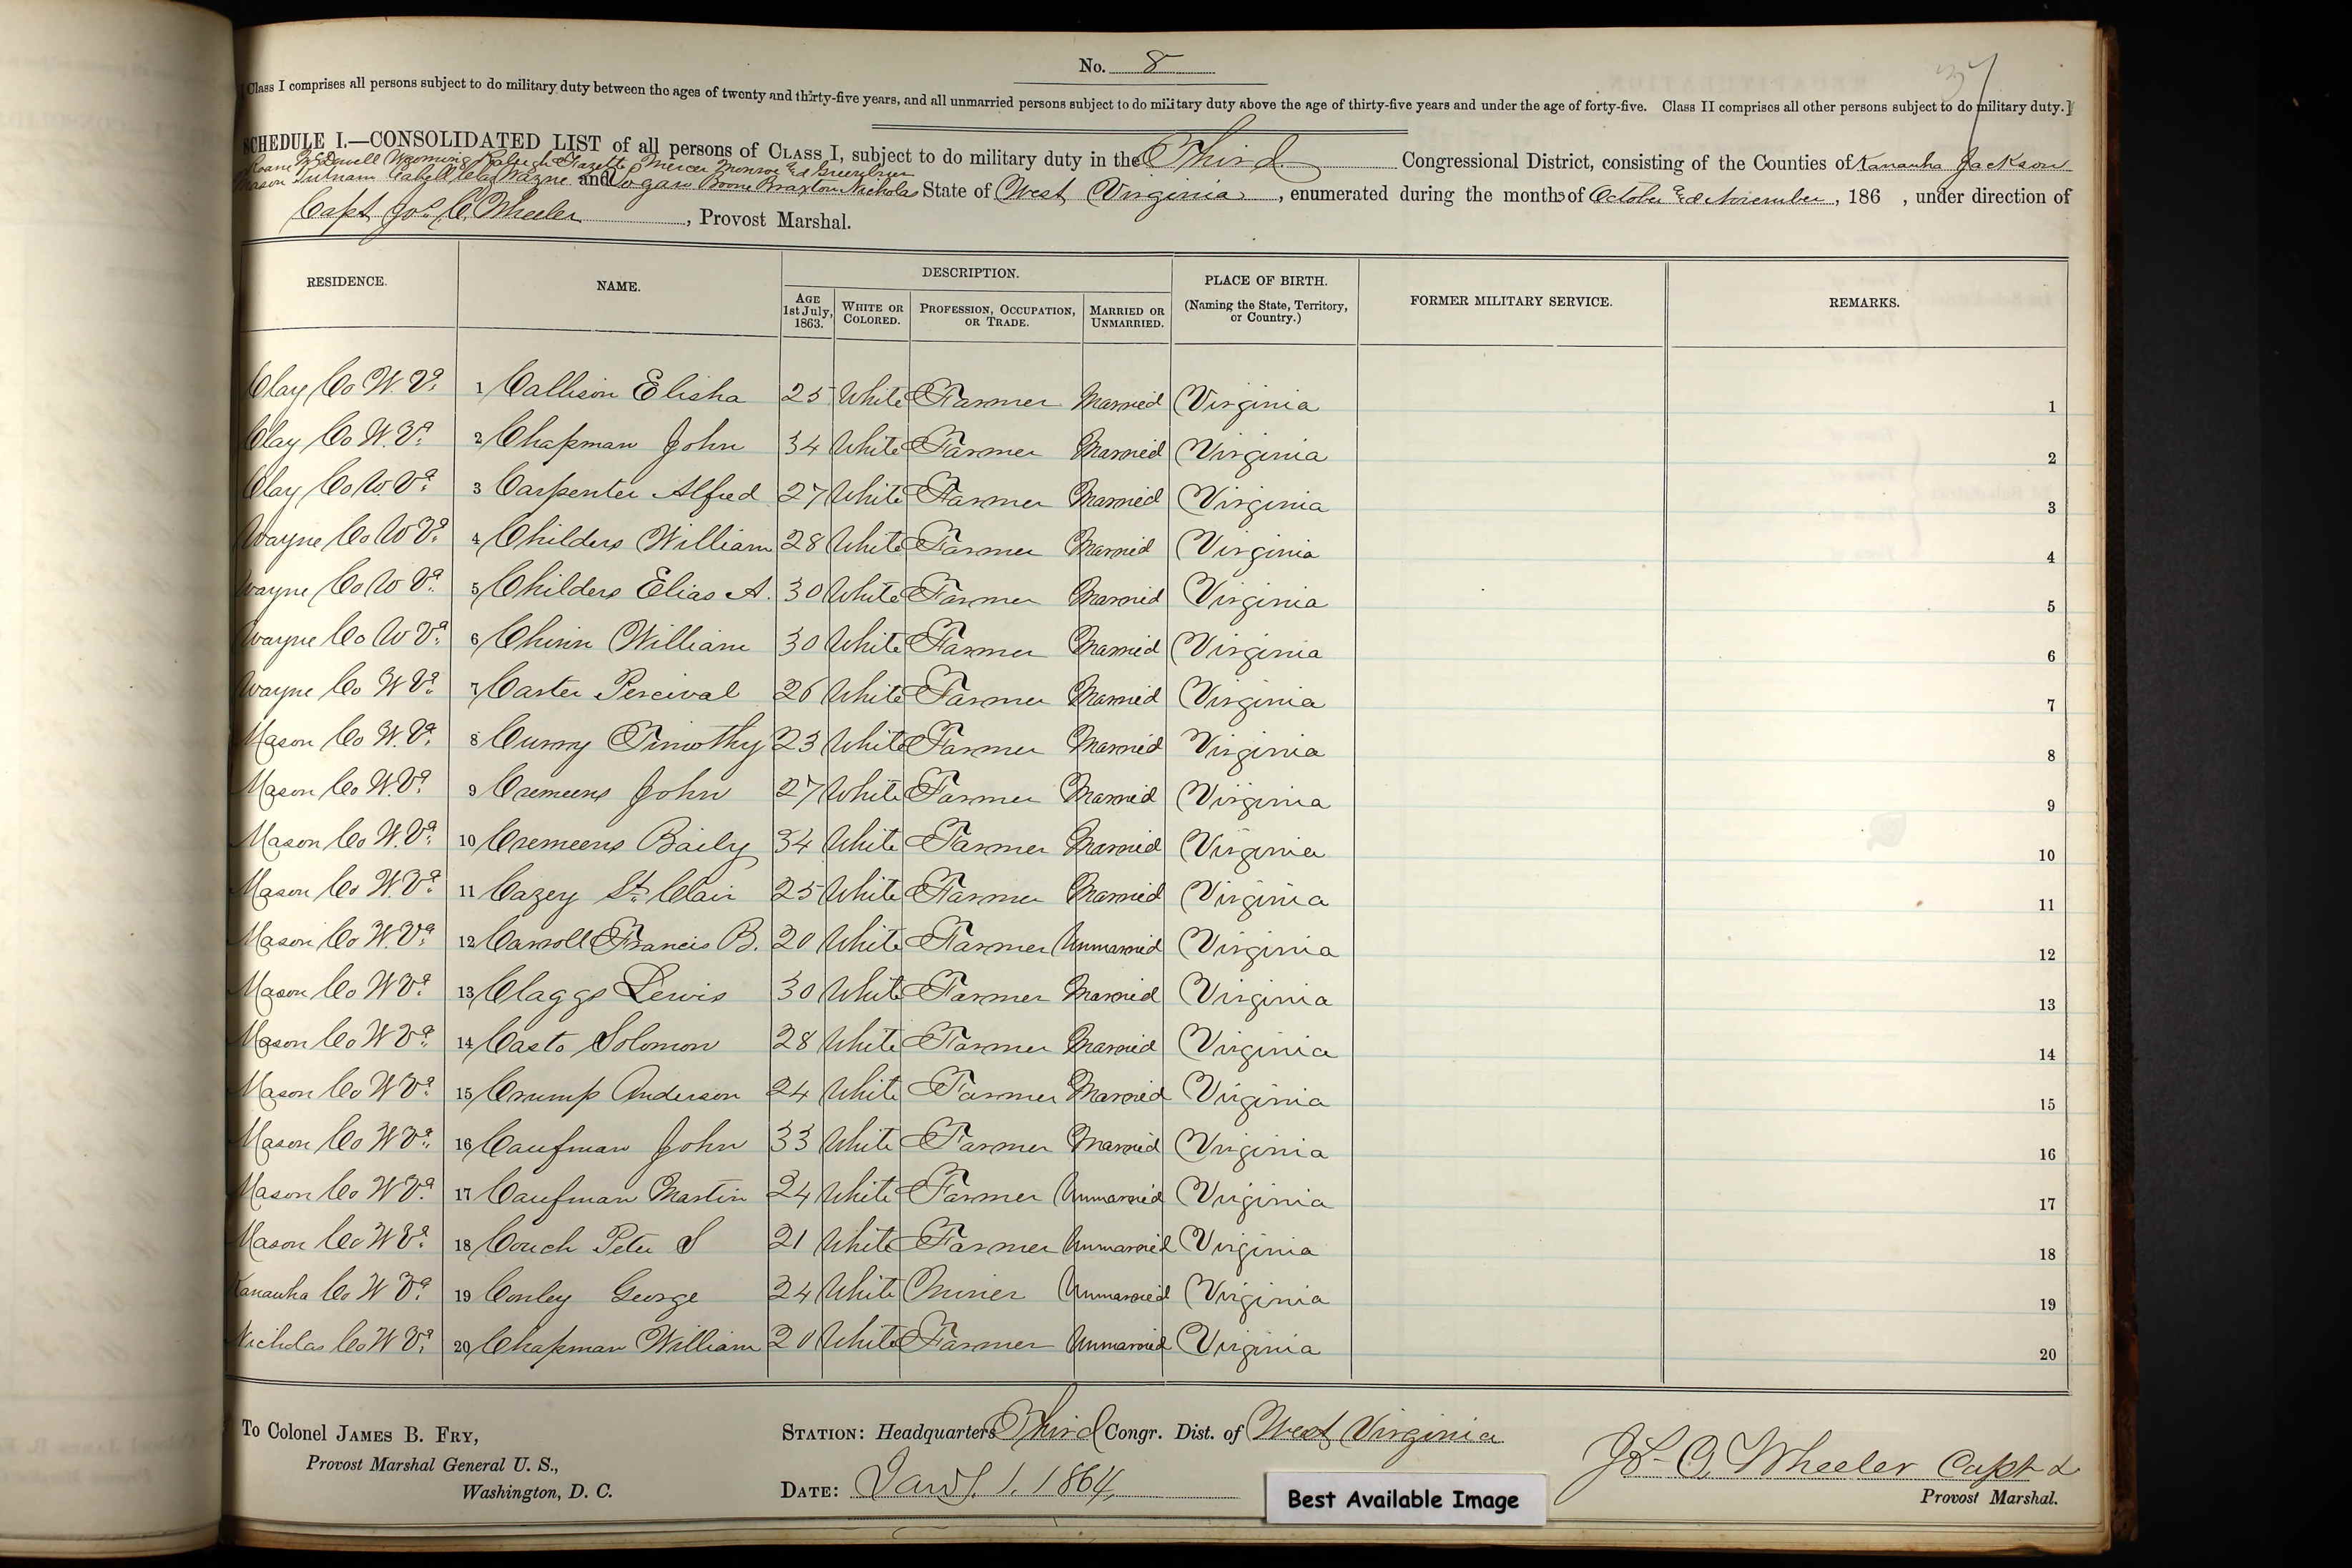 No. 8
37
[Class I comprises all persons subject to do military duty between the ages of twenty and thirty-five years, and all unmarried persons subject to do military duty above the age of thirty-five years and under the age of forty-five. Class II comprises all other persons subject to do military duty.]
SCHEDULE I.—CONSOLIDATED LIST of all persons of CLASS I, subject to do military duty in the Third Congressional District, consisting of the Counties of Kanawha Jackson
Roane McDowell Wyoming Raleigh Fayette Mercer Monroe & Greenbrier
Mason Putnam Cabell Clay Wayne and Logan Boone Braxton Nicholas State of West Virginia, enumerated during the months of October & November, 186 , under direction of
Capt Jos. C. Wheeler, Provost Marshal.
RESIDENCE. NAME. DESCRIPTION. PLACE OF BIRTH. (Naming the State, Territory, or Country.) FORMER MILITARY SERVICE. REMARKS.
AGE 1st July, 1863. WHITE OR COLORED. PROFESSION, OCCUPATION, OR TRADE. MARRIED OR UNMARRIED.
Clay Co W. Va. 1 Callison Elisha 25 White Farmer Married Virginia 1
Clay Co W. Va. 2 Chapman John 34 White Farmer Married Virginia 2
Clay Co W. Va. 3 Carpenter Alfred 27 White Farmer Married Virginia 3
Wayne Co W Va. 4 Childers William 28 White Farmer Married Virginia 4
Wayne Co W Va. 5 Childers Elias A. 30 White Farmer Married Virginia 5
Wayne Co W Va. 6 Chinn William 30 White Farmer Married Virginia 6
Wayne Co W Va. 7 Carter Percival 26 White Farmer Married Virginia 7
Mason Co W. Va. 8 Curry Timothy 23 White Farmer Married Virginia 8
Mason Co W. Va. 9 Cremeens John 27 White Farmer Married Virginia 9
Mason Co W. Va. 10 Cremeens Baily 34 White Farmer Married Virginia 10
Mason Co W. Va. 11 Cazey St. Clair 25 White Farmer Married Virginia 11
Mason Co W. Va. 12 Carroll Francis B. 20 White Farmer Unmarried Virginia 12
Mason Co W Va. 13 Claggs Lewis 30 White Farmer Married Virginia 13
Mason Co W Va. 14 Casto Solomon 28 White Farmer Married Virginia 14
Mason Co W Va. 15 Crump Anderson 24 White Farmer Married Virginia 15
Mason Co W Va. 16 Caufman John 33 White Farmer Married Virginia 16
Mason Co W Va. 17 Caufman Martin 24 White Farmer Unmarried Virginia 17
Mason Co W Va. 18 Couch Peter S 21 White Farmer Unmarried Virginia 18
Kanawha Co W Va. 19 Conley George 24 White Miner Unmarried Virginia 19
Nicholas Co W Va. 20 Chapman William 20 White Farmer Unmarried Virginia 20
To Colonel JAMES B. FRY,
Provost Marshal General U. S.,
Washington, D. C.
STATION: Headquarters Third Congr. Dist. of West Virginia
DATE: Jany. 1. 1864,
Jos C. Wheeler Capt &
Provost Marshal.
Best Available Image